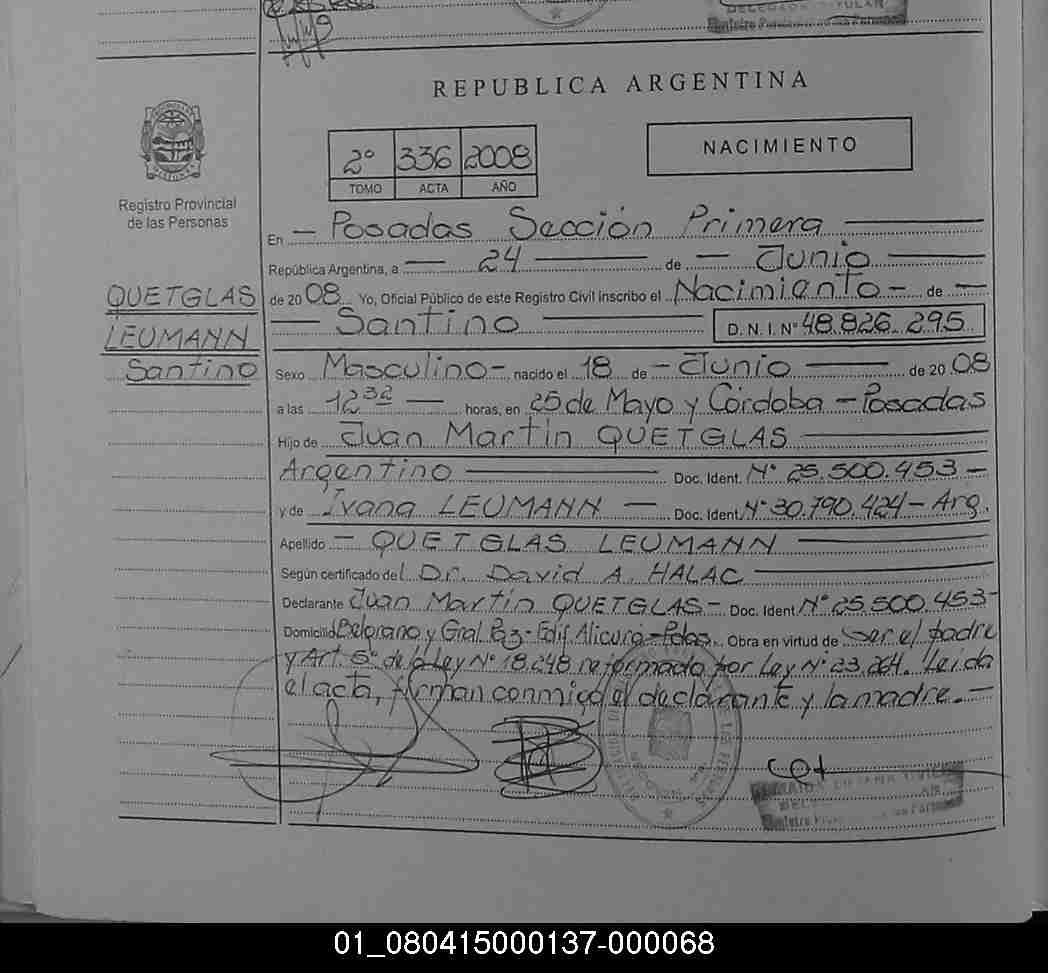 REPUBLICA ARGENTINA
2° 336 2008
TOMO ACTA AÑO
NACIMIENTO
Registro Provincial
de las Personas
QUETGLAS
LEUMANN
Santino
En — Posadas Sección Primera
República Argentina, a — 24 — de — Junio
de 2008 Yo, Oficial Público de este Registro Civil inscribo el Nacimiento — de —
— Santino — D.N.I. N° 48.826.295
Sexo Masculino — nacido el 18 de — Junio — de 2008
a las 12 32 — horas, en 25 de Mayo y Córdoba — Posadas
Hijo de Juan Martin QUETGLAS
Argentino — Doc. Ident. N° 25.500.453 —
y de Ivana LEUMANN — Doc. Ident. N° 30.790.424 — Arg.
Apellido — QUETGLAS LEUMANN
Según certificado del Dr. David A. HALAC
Declarante Juan Martin QUETGLAS — Doc. Ident. N° 25.500.453 —
Domicilio Belgrano y Gral. Paz - Edif. Alicurá - Pdas. Obra en virtud de Ser el padre
y Art. 5° de la Ley N° 18.248 reformado por Ley N° 23.264. Leida
el acta, firman conmigo el declarante y la madre. —
01_080415000137-000068